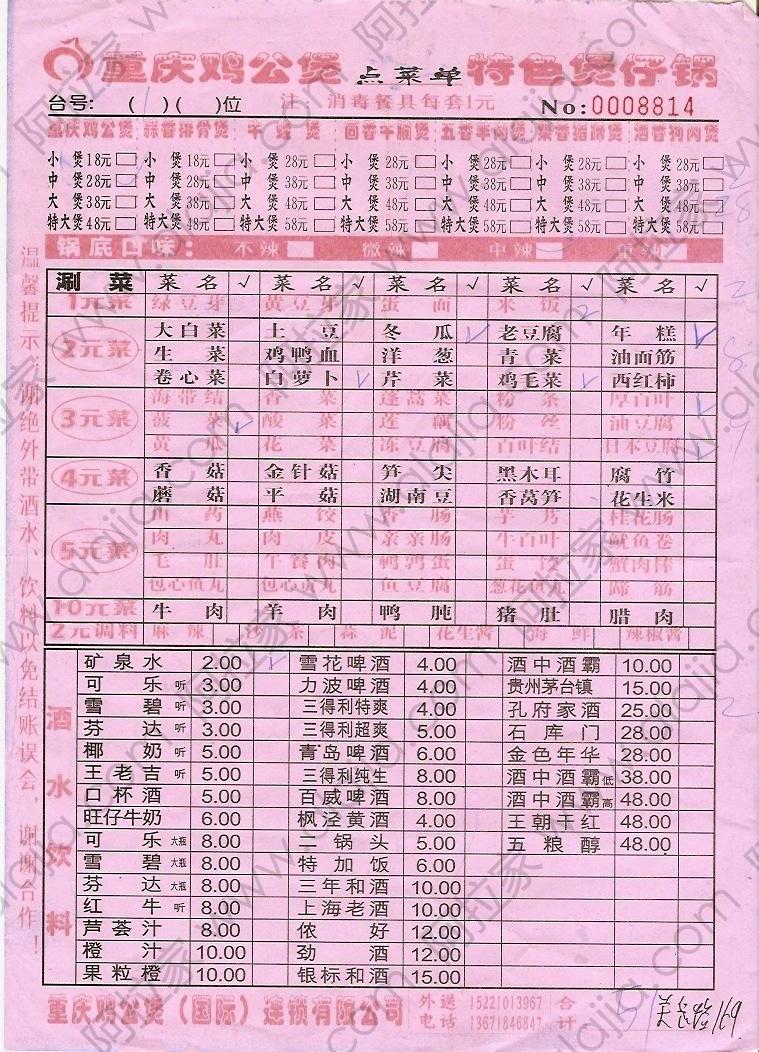 重庆鸡公煲 点菜单 特色煲仔锅
台号: ( )( )位 注 消毒餐具每套1元 No:0008814
重庆鸡公煲 蒜香排骨煲 牛蛙煲 回香牛腩煲 五香羊肉煲 酱香猪脚煲 酒香狗肉煲
小煲18元 小煲18元 小煲28元 小煲28元 小煲28元 小煲28元 小煲28元
中煲28元 中煲28元 中煲38元 中煲38元 中煲38元 中煲38元 中煲38元
大煲38元 大煲38元 大煲48元 大煲48元 大煲48元 大煲48元 大煲48元
特大煲48元 特大煲48元 特大煲58元 特大煲58元 特大煲58元 特大煲58元 特大煲58元
锅底口味: 不辣 微辣 中辣
涮菜 菜名 √ 菜名 √ 菜名 √ 菜名 √ 菜名 √
1元菜 绿豆芽 黄豆芽 蛋面 米饭
2元菜 大白菜 土豆 冬瓜 老豆腐 年糕
生菜 鸡鸭血 洋葱 青菜 油面筋
卷心菜 白萝卜 芹菜 鸡毛菜 西红柿
3元菜 海带结 香菜 蓬蒿菜 粉条 厚百叶
菠菜 酸菜 莲藕 粉丝 油豆腐
黄 花菜 冻豆腐 百叶结 日本豆腐
4元菜 香菇 金针菇 笋尖 黑木耳 腐竹
蘑菇 平菇 湖南豆 香莴笋 花生米
5元菜 山药 燕饺 肠 芋艿 桂花肠
肉丸 肉皮 亲亲肠 牛百叶 鱿鱼卷
毛肚 午餐肉 鹌鹑蛋 蛋饺 蟹肉棒
包心鱼丸 包心肉丸 鱼豆腐 葱花鱼 蹄筋
10元菜 牛肉 羊肉 鸭肫 猪肚 腊肉
2元调料 麻辣 沙茶 蒜泥 花生酱 海鲜 辣椒酱
酒水饮料
矿泉水 2.00 雪花啤酒 4.00 酒中酒霸 10.00
可乐听 3.00 力波啤酒 4.00 贵州茅台镇 15.00
雪碧听 3.00 三得利特爽 4.00 孔府家酒 25.00
芬达听 3.00 三得利超爽 5.00 石库门 28.00
椰奶听 5.00 青岛啤酒 6.00 金色年华 28.00
王老吉听 5.00 三得利纯生 8.00 酒中酒霸低 38.00
口杯酒 5.00 百威啤酒 8.00 酒中酒霸高 48.00
旺仔牛奶 6.00 枫泾黄酒 4.00 王朝干红 48.00
可乐大瓶 8.00 二锅头 5.00 五粮醇 48.00
雪碧大瓶 8.00 特加饭 6.00
芬达大瓶 8.00 三年和酒 10.00
红牛听 8.00 上海老酒 10.00
芦荟汁 8.00 侬好 12.00
橙汁 10.00 劲酒 12.00
果粒橙 10.00 银标和酒 15.00
重庆鸡公煲(国际)连锁有限公司 外送电话 15221013967 13671846847 合计:
温馨提示:谢绝外带酒水、饮料以免结账误会,谢谢合作!
阿拉家 www.alajia.com